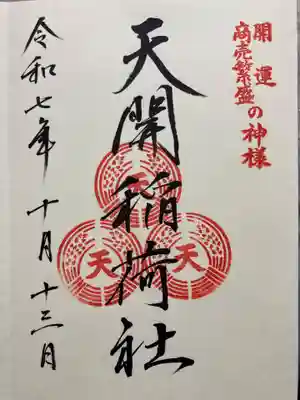 開運
商売繁盛の神様
天開稲荷社
天
天
天
令和七年 十月 十三日